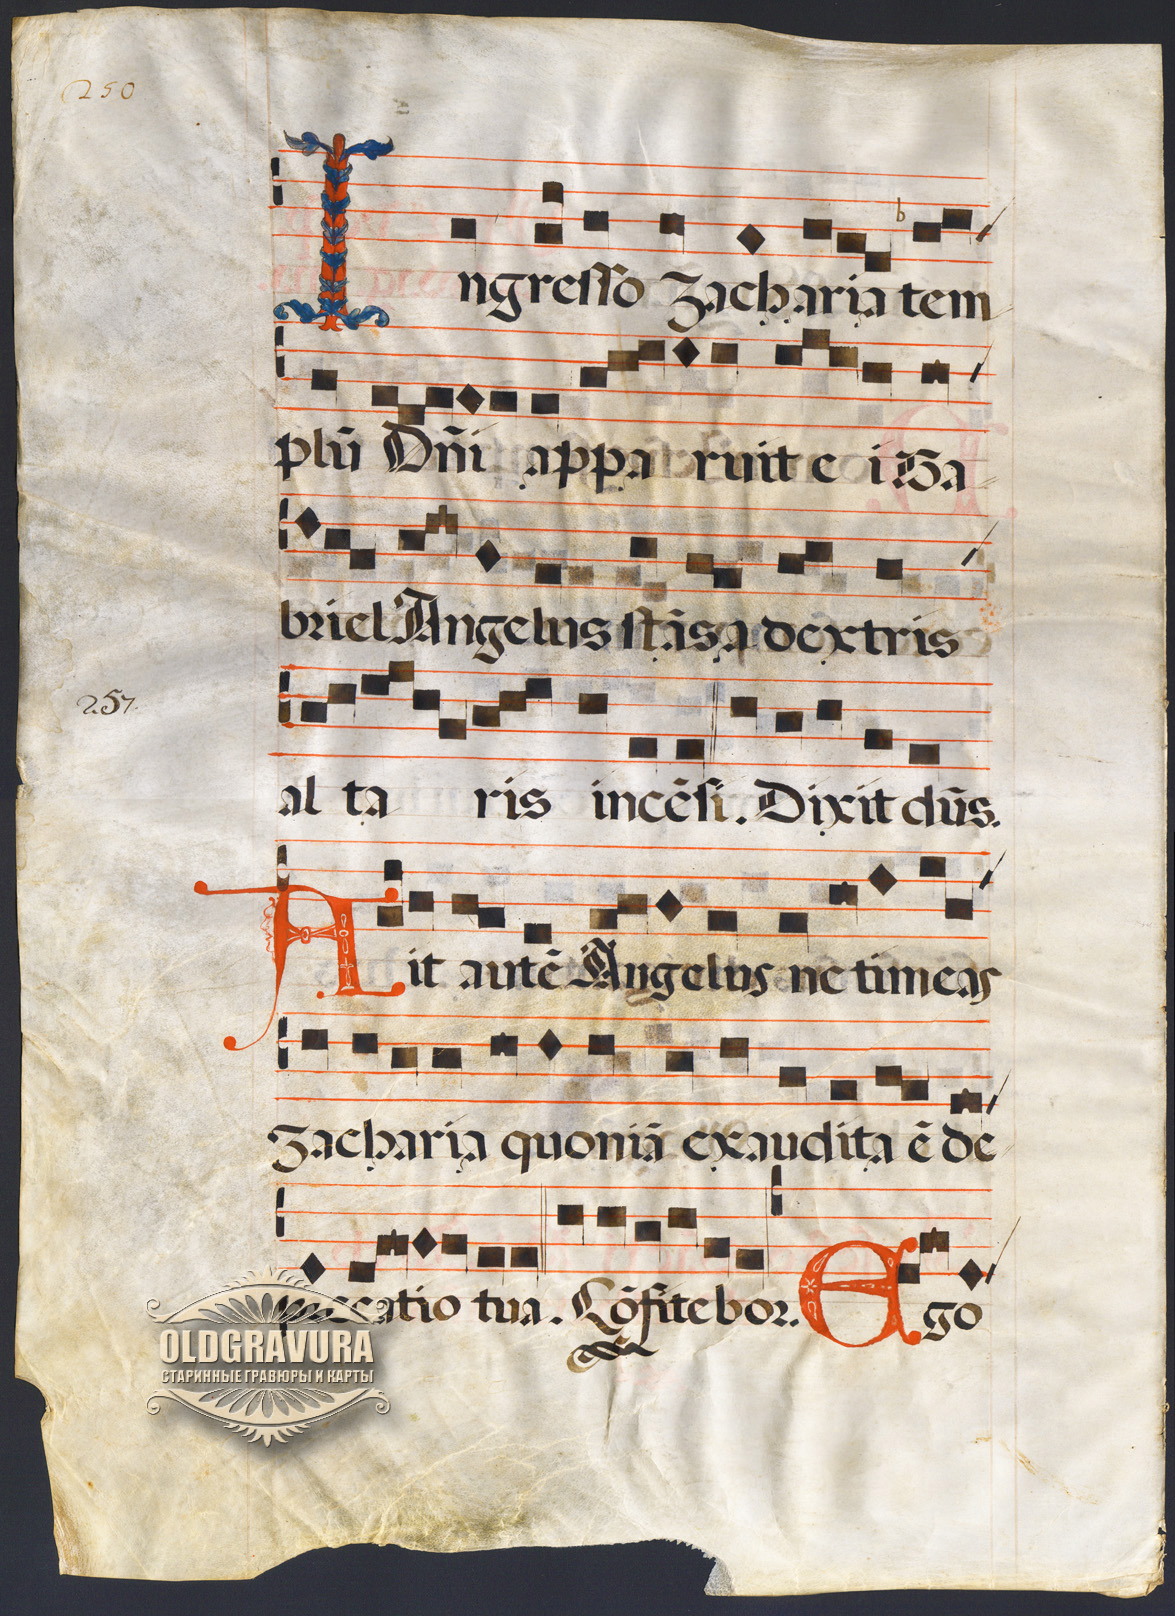 250
Ingresso Zacharia tem
plū Dñi appa ruit e i Ga
briel Angelus stās a dextris
257.
al ta ris incēsi. Dixit dūs.
Ait autē Angelus ne timeas
Zacharia quoniā exaudita ē de
precatio tua. Cōfitebor. Ego
OLDGRAVURA
СТАРИННЫЕ ГРАВЮРЫ И КАРТЫ